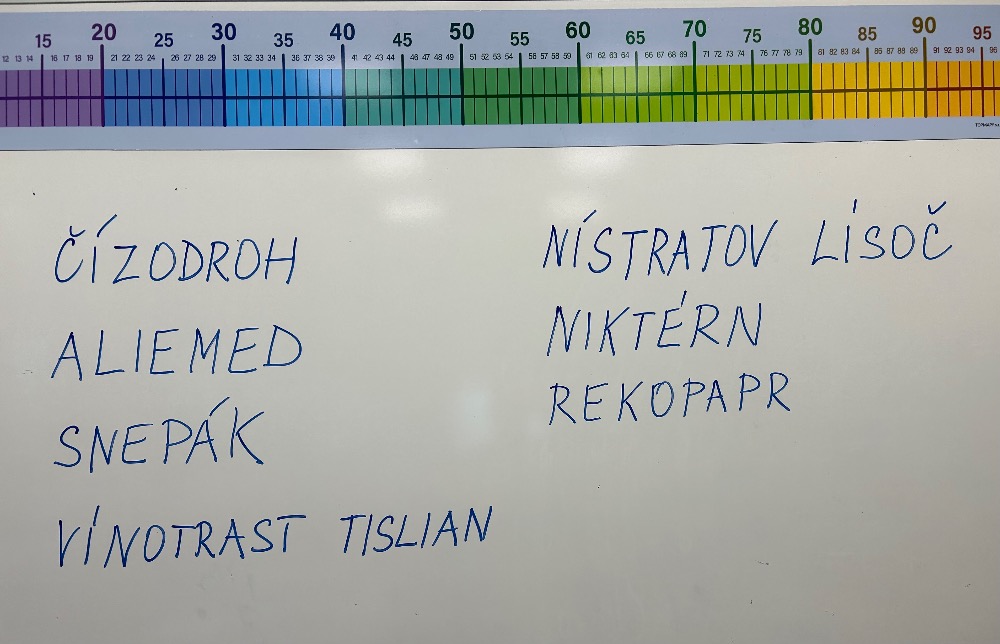 15 20 25 30 35 40 45 50 55 60 65 70 75 80 85 90 95
12 13 14 16 17 18 19 21 22 23 24 26 27 28 29 31 32 33 34 36 37 38 39 41 42 43 44 46 47 48 49 51 52 53 54 56 57 58 59 61 62 63 64 66 67 68 69 71 72 73 74 76 77 78 79 81 82 83 84 86 87 88 89 91 92 93 94 96
ČÍZODROH
ALIEMED
SNEPÁK
VÍNOTRAST TISLIAN
NÍSTRATOV LÍSOČ
NIKTÉRN
REKOPAPR